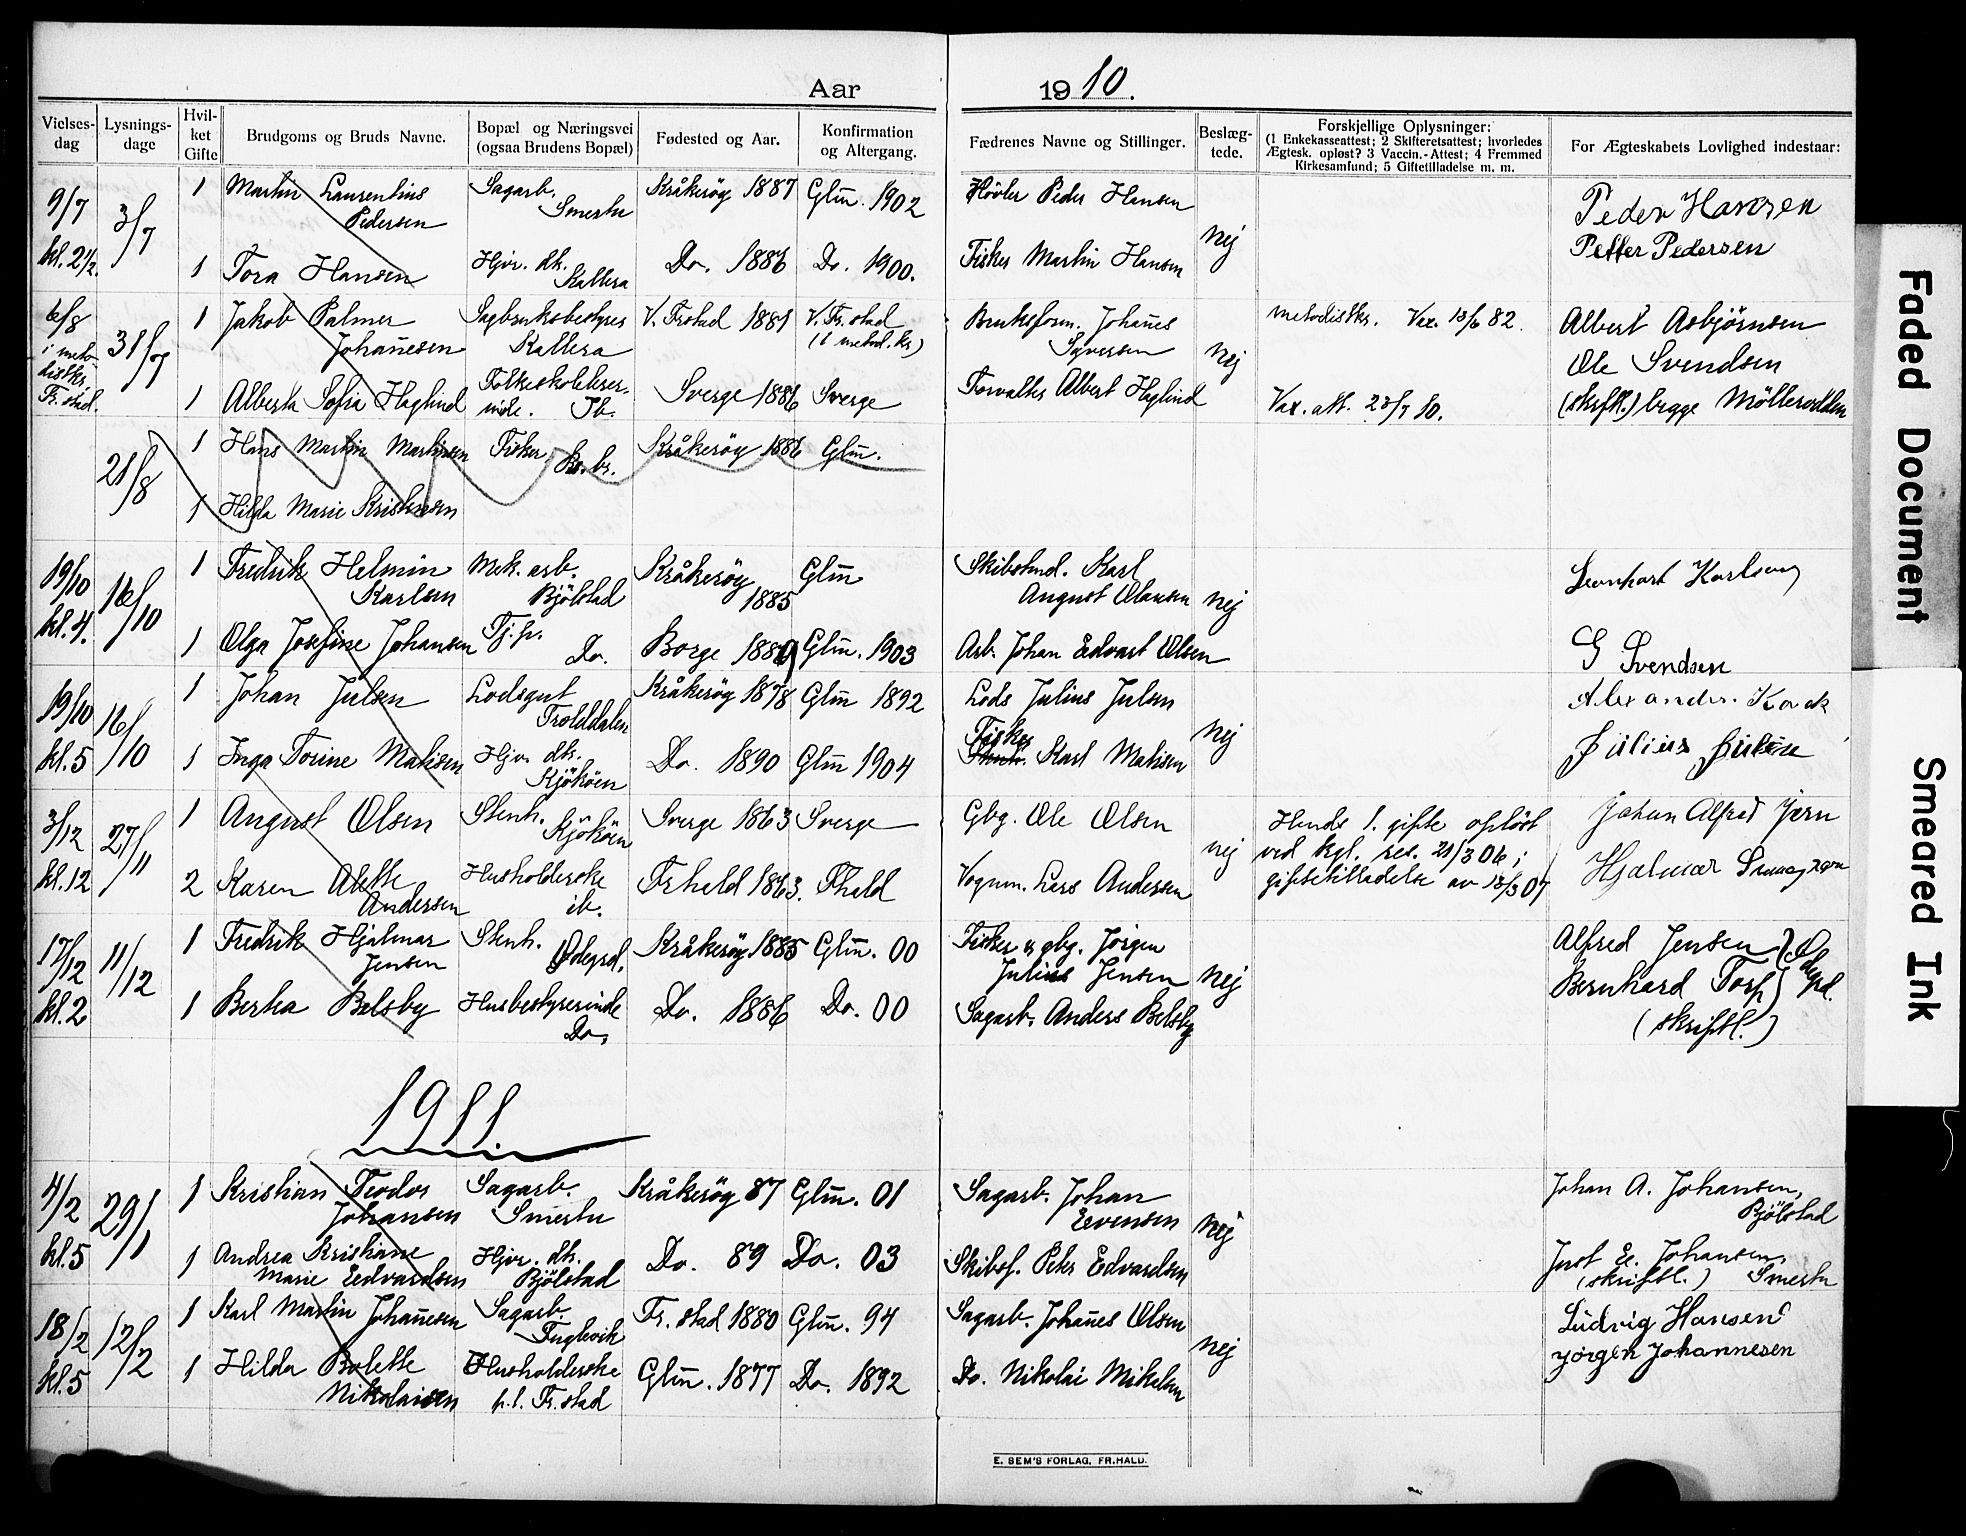 Aar 1910.
Vielses-dag | Lysnings-dage | Hvil-ket Gifte | Brudgoms og Bruds Navne. | Bopæl og Næringsvei (ogsaa Brudens Bopæl) | Fødested og Aar. | Konfirmation og Altergang. | Fædrenes Navne og Stillinger. | Beslæg-tede. | Forskjellige Oplysninger: (1 Enkekasseattest; 2 Skifteretsattest; hvorledes Ægtesk. opløst? 3 Vaccin.-Attest; 4 Fremmed Kirkesamfund; 5 Giftetilladelse m. m. | For Ægteskabets Lovlighed indestaar:
9/7 kl. 2½. | 3/7 | 1 | Martin Laurentius Pedersen | Sagarb. Smertu | Kråkerøy 1887 | Glm. 1902 | Høvler Peder Hansen | nej | | Peder Hansen
1 | Tora Hansen | Hjv. dtr. Kallera | Do. 1886 | Do. 1900. | Fisker Martin Hansen | | | Petter Pedersen
6/8 i metodistkr. Fr.stad. | 31/7 | 1 | Jakob Palmer Johanesen | Sagbruksbestyrer Kallera | V. Frstad 1881 | V. Fr.stad (i metod. kr) | Bruksform. Johanes Syversen | nej | metodistkr. Vax. 13/6 82. | Albert Asbjørnsen
Ole Svendsen
1 | Alberta Sofia Haglund | Folkeskolelærerinde. Ib. | Sverge 1886 | Sverge | Forvalter Albert Haglund | | Vax. att. 23/7 10. | (skriftl.) begge Møllerodden
21/8 | 1 | Hans Martin Martinsen | Fisker | Kråkerøy 1886 | Glm.
1 | Hilda Marie Kristensen
19/10 kl. 4. | 16/10 | 1 | Fredrik Helmin Karlsen | Mek. arb. Bjølstad | Kråkerøy 1885 | Glm | Skibstmd. Karl August Olausen | nej | | Leonhart Karlsen
1 | Olga Josefine Johansen | Tj.p. Do. | Borge 1889 | Glm. 1903 | Arb. Johan Edvart Olsen | | | G Svendsen
19/10 kl. 5 | 16/10 | 1 | Johan Julsen | Lodsgut Trolddalen | Kråkerøy 1878 | Glm 1892 | Lods Julius Julsen | nej | | Alexander Kock
1 | Inga Torine Matisen | Hjv. dtr. Kjøkøen | Do. 1890 | Glm 1904 | Fisker Karl Matisen | | | Julius Julsen
3/12 kl. 12 | 27/11 | 1 | August Olsen | Stenh. Kjøkøen | Sverge 1863 | Sverge | Gbg. Ole Olsen | nej | Hends 1. gifte opløst ved kgl. res. 21/3 06; giftetilladelse av 13/3 07 | Johan Alfred Jørn
2 | Karen Alette Andersen | Husholderske ib. | Frhald 1863. | Fhald | Vognm. Lars Andersen | | | Hjalmar
17/12 kl. 2 | 11/12 | 1 | Fredrik Hjalmar Jensen | Stenh. Ødegrd. | Kråkerøy 1885 | Glm. 00 | Fisker & gbg. Jørgen Julius Jensen | nej | | Alfred Jensen
1 | Berta Belsby | Husbestyrerinde Do. | Do. 1886 | Do. 00 | Sagarb. Anders Belsby | | | Bernhard Torp } Ødegrd. (skriftl.)
1911.
4/2 kl. 5 | 29/1 | 1 | Kristian Teodor Johansen | Sagarb. Smertu | Kråkerøy 87 | Glm. 01 | Sagarb. Johan Evensen | nej | | Johan A. Johansen, Bjølstad
1 | Andrea Kristiane Marie Edvardsen | Hjv. dtr. Bjølstad | Do. 89 | Do. 03 | Skibsf. Peter Edvardsen | | | Just E. Johansen, (skriftl.) Smertu
18/2 kl. 5 | 12/2 | 1 | Karl Martin Johanesen | Sagarb. Fuglevik | Fr.stad 1880 | Glm. 94 | Sagarb. Johanes Olsen | nej | | Ludvig Hansen
1 | Hilda Bolette Nikolaisen | Husholderske p.t. Fr.stad | Glm. 1877 | Do. 1892 | Do. Nikolai Mikelsen | | | Jørgen Johannesen
E. SEM'S FORLAG, FR.HALD.
Faded Document
Smeared Ink